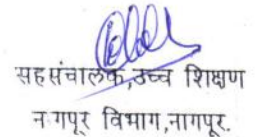 सहसंचालक,उच्च शिक्षण
नागपूर विभाग,नागपूर.